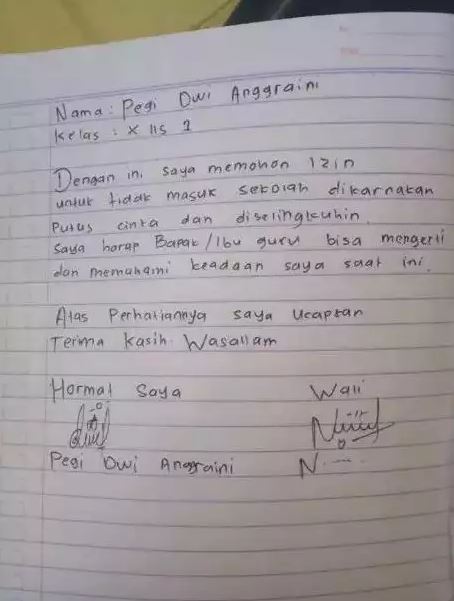 Nama : Pegi Dwi Anggraini
Kelas : X IIS 1
Dengan ini saya memohon Izin
untuk tidak masuk sekolah dikarnakan
Putus cinta dan diselingkuhin.
Saya harap Bapak/Ibu guru bisa mengerti
dan memahami keadaan saya saat ini.
Atas Perhatiannya saya Ucapkan
Terima Kasih. Wasallam
Hormat Saya Wali
Pegi Dwi Anggraini N.